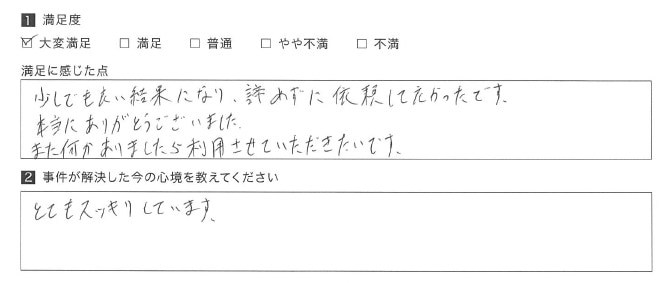 1 満足度
☑ 大変満足 □ 満足 □ 普通 □ やや不満 □ 不満
満足に感じた点
少しでも良い結果になり、諦めずに依頼して良かったです。
本当にありがとうございました。
また何かありましたら利用させていただきたいです。
2 事件が解決した今の心境を教えてください
とてもスッキリしています。